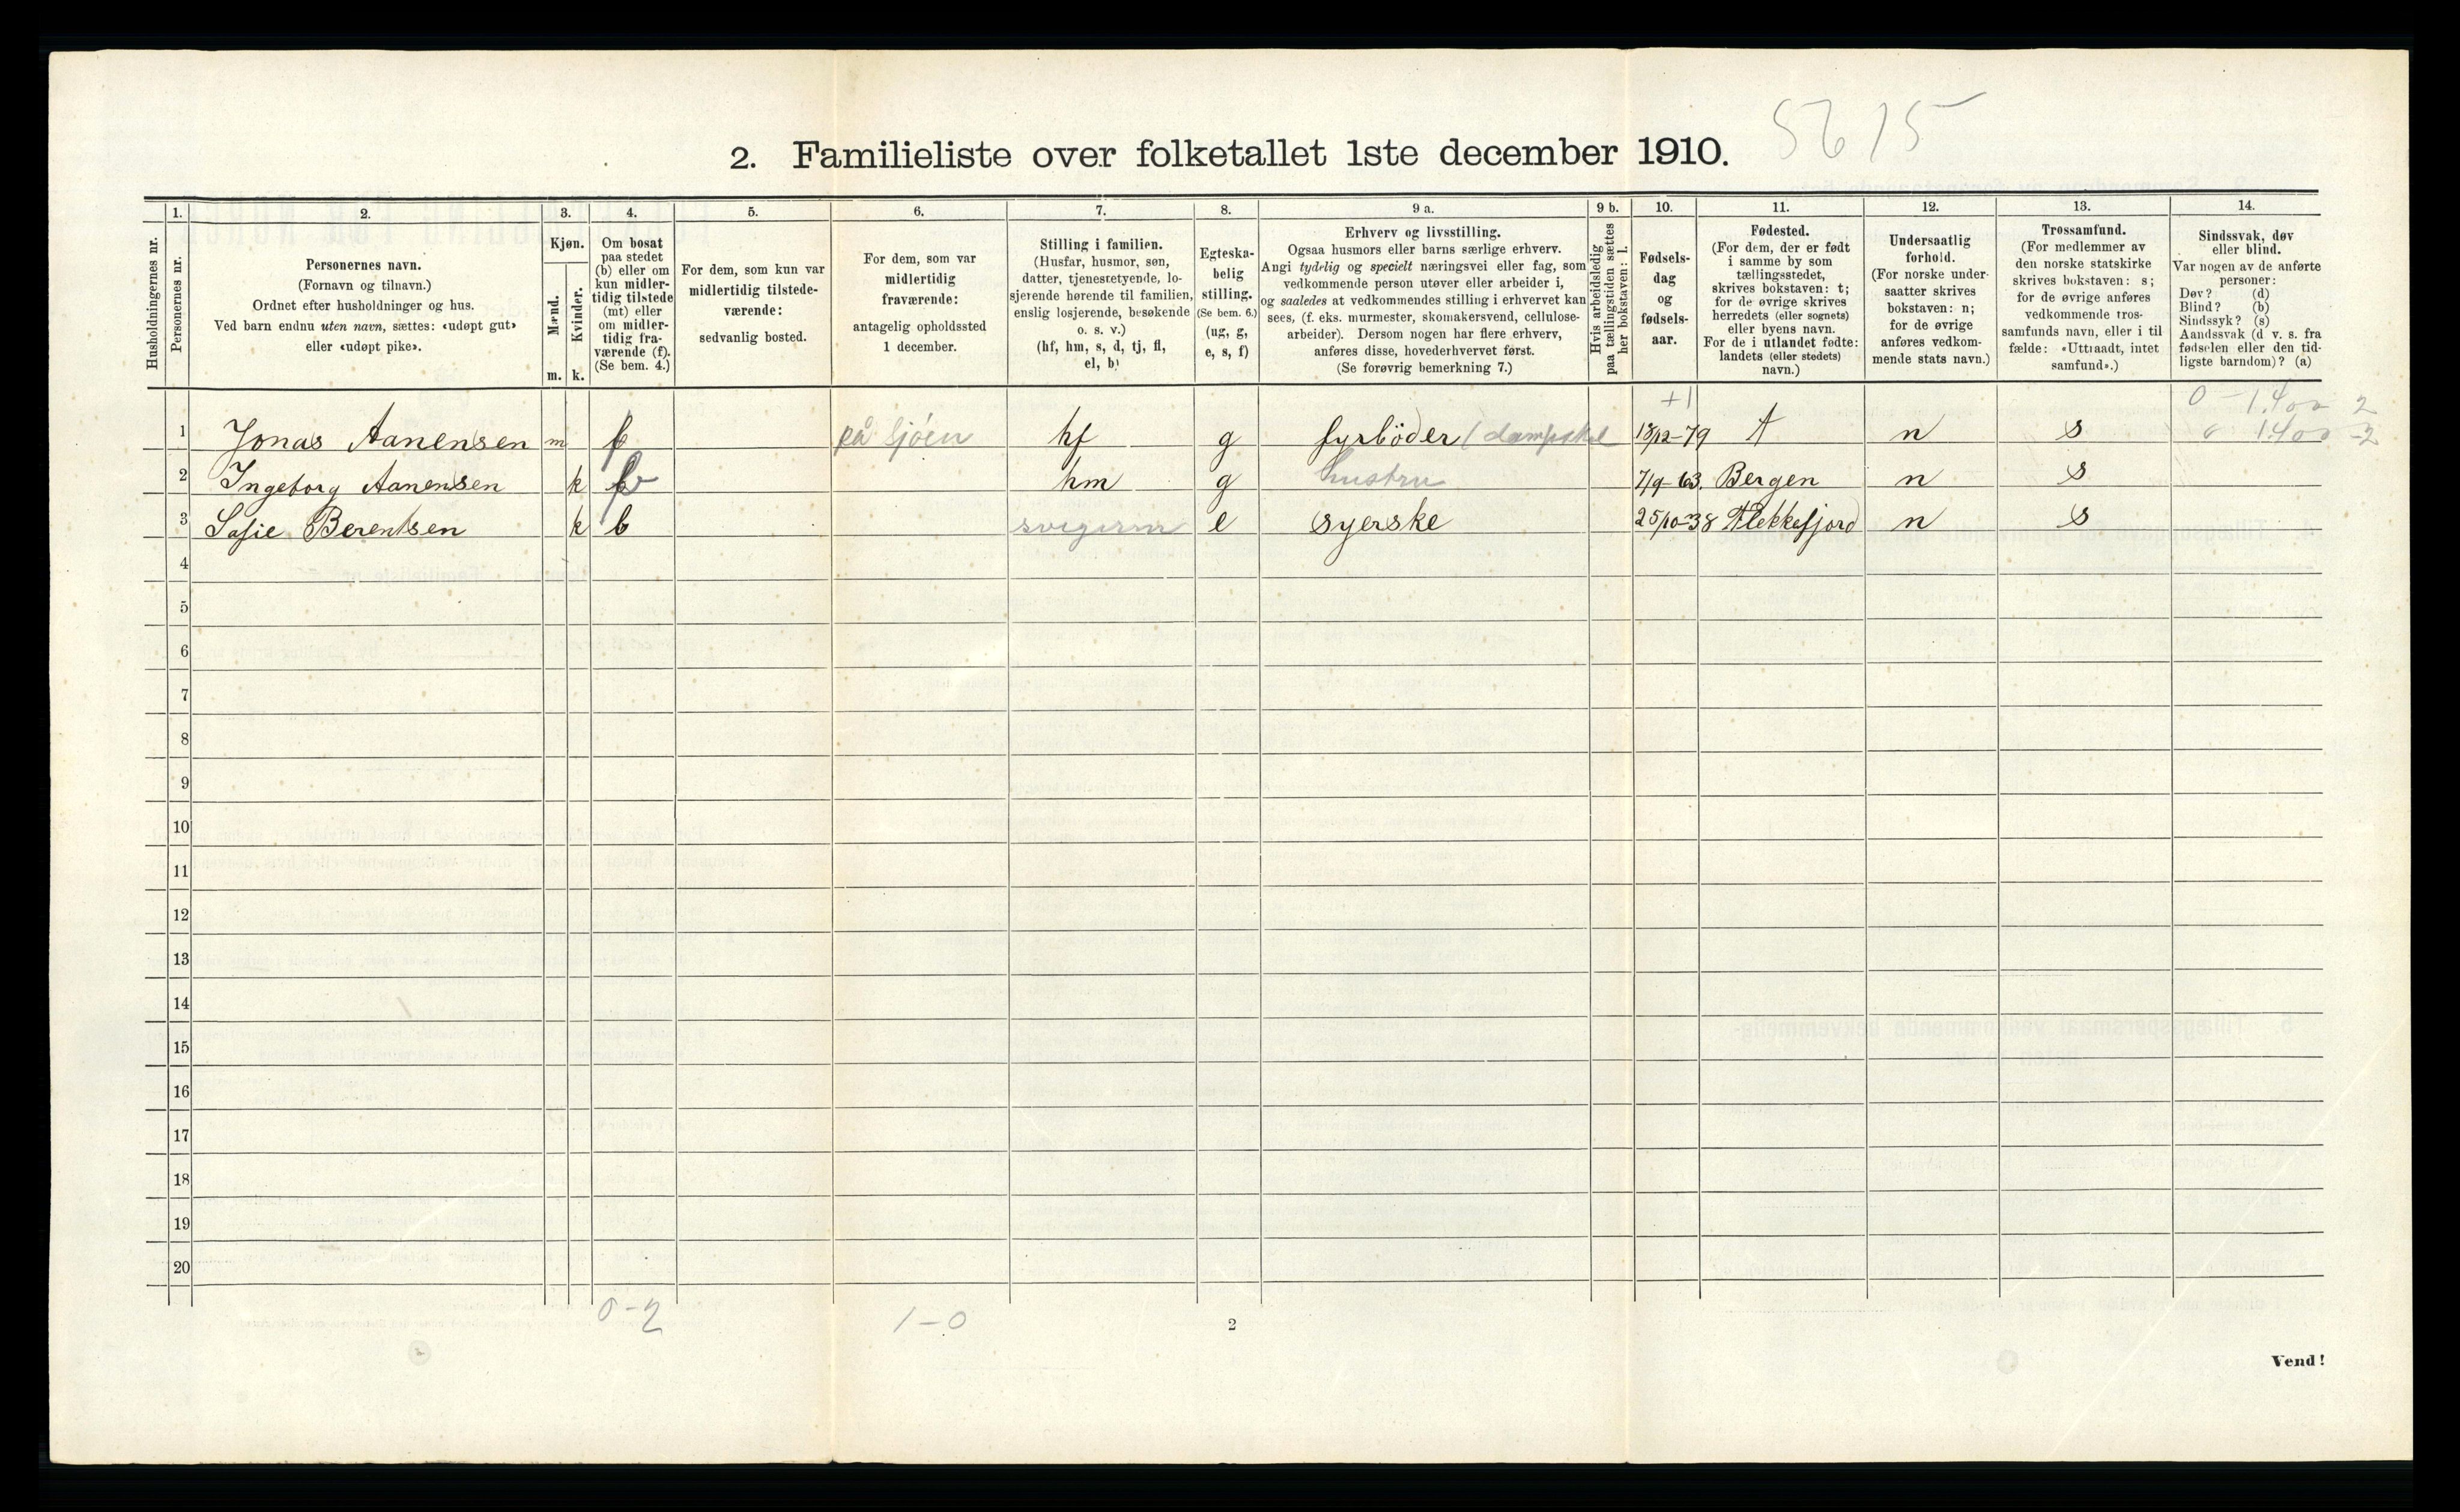 5615
2. Familieliste over folketallet 1ste december 1910.
Husholdningernes nr.
1. Personernes nr.
2. Personernes navn.
(Fornavn og tilnavn.)
Ordnet efter husholdninger og hus.
Ved barn endnu uten navn, sættes: «udøpt gut»
eller «udøpt pike».
3. Kjøn.
Mænd. m.
Kvinder. k.
4. Om bosat
paa stedet
(b) eller om
kun midler-
tidig tilstede
(mt) eller
om midler-
tidig fra-
værende (f).
(Se bem. 4.)
5. For dem, som kun var
midlertidig tilstede-
værende:
sedvanlig bosted.
6. For dem, som var
midlertidig
fraværende:
antagelig opholdssted
1 december.
7. Stilling i familien.
(Husfar, husmor, søn,
datter, tjenestetyende, lo-
sjerende hørende til familien,
enslig losjerende, besøkende
o. s. v.)
(hf, hm, s, d, tj, fl,
el, b)
8. Egteska-
belig
stilling.
(Se bem. 6.)
(ug, g,
e, s, f)
9 a. Erhverv og livsstilling.
Ogsaa husmors eller barns særlige erhverv.
Angi tydelig og specielt næringsvei eller fag, som
vedkommende person utøver eller arbeider i,
og saaledes at vedkommendes stilling i erhvervet kan
sees, (f. eks. murmester, skomakersvend, cellulose-
arbeider). Dersom nogen har flere erhverv,
anføres disse, hovederhvervet først.
(Se forøvrig bemerkning 7.)
9 b. Hvis arbeidsledig
paa tællingstiden sættes
her bokstaven: l.
10. Fødsels-
dag
og
fødsels-
aar.
11. Fødested.
(For dem, der er født
i samme by som
tællingsstedet,
skrives bokstaven: t;
for de øvrige skrives
herredets (eller sognets)
eller byens navn.
For de i utlandet fødte:
landets (eller stedets)
navn.)
12. Undersaatlig
forhold.
(For norske under-
saatter skrives
bokstaven: n;
for de øvrige
anføres vedkom-
mende stats navn.)
13. Trossamfund.
(For medlemmer av
den norske statskirke
skrives bokstaven: s;
for de øvrige anføres
vedkommende tros-
samfunds navn, eller i til-
fælde: «Uttraadt, intet
samfund».)
14. Sindssvak, døv
eller blind.
Var nogen av de anførte
personer:
Døv? (d)
Blind? (b)
Sindssyk? (s)
Aandssvak (d v. s. fra
fødselen eller den tid-
ligste barndom)? (a)
+1 0 - 1.400 2
1 Jonas Aanensen m f på sjöen hf g fyrböder 18/12-79 t n s 0 1.400 -2
2 Ingeborg Aanensen k b hm g hustru 7/9-63. Bergen n s
3 Sofie Berentsen k b e syerske 25/10-38 Flekkefjord n s
4
5
6
7
8
9
10
11
12
13
14
15
16
17
18
19
20
0-2 1-0
2
Vend!